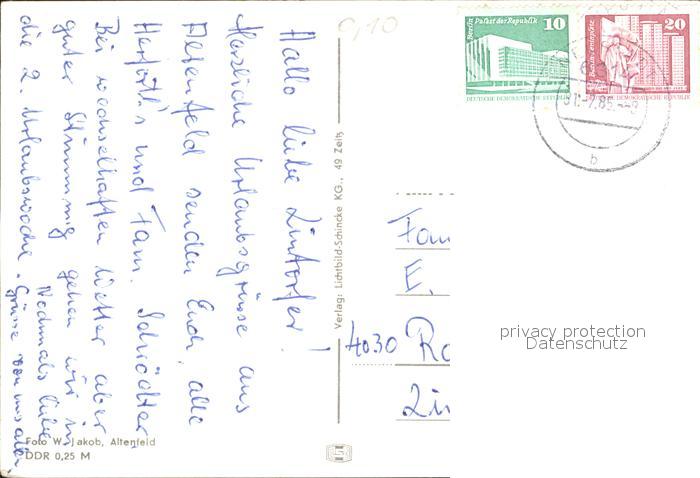 Hallo liebe Lintorfer!
Herzliche Urlaubsgrüsse aus
Altenfeld senden Euch alle
Herfürth's und Fam. Schrödter.
Bei wechselhaften Wetter aber
guter Stimmung gehen wir in
die 2. Urlaubswoche.
Nochmals liebe
Grüsse von uns allen
0,10
Berlin Palast der Republik
10
DEUTSCHE DEMOKRATISCHE REPUBLIK
Berlin, Leninplatz
20
DEUTSCHE DEMOKRATISCHE REPUBLIK
b
Verlag: Lichtbild-Schincke KG., 49 Zeitz
Fam
E.
4030 Ra
Lin
privacy protection
Datenschutz
Foto W. Jakob, Altenfeld
DDR 0,25 M